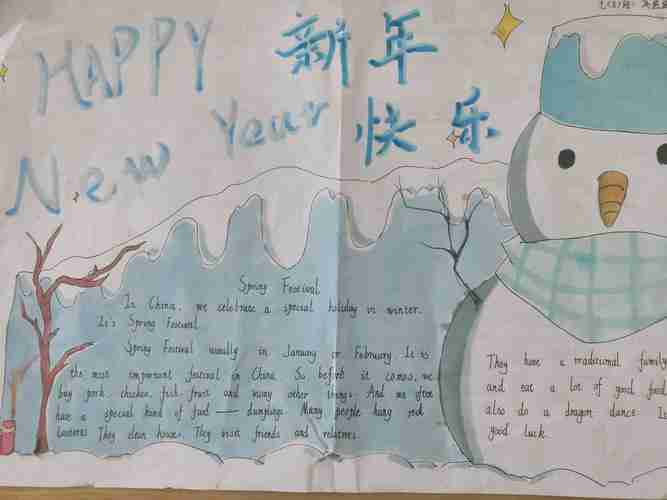 HAPPY 新年
New Year 快乐
Spring Festival
In China, we celebrate a special holiday in winter.
It's Spring Festival
Spring Festival usually in January or February It is
the most important festival in China. So before it comes, we
buy pork, chicken, fish fruit and many other things. And we often
have a special kind of food — dumplings Many people hang red
lanterns They clean house. They visit friends and relatives.
They have a traditional family
and eat a lot of good food
also do a dragon dance. It
good luck.